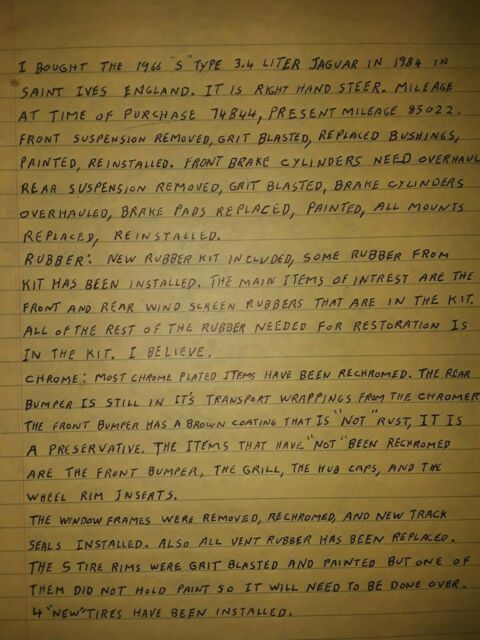 I BOUGHT THE 1966 "S" TYPE 3.4 LITER JAGUAR IN 1984 IN
SAINT IVES ENGLAND. IT IS RIGHT HAND STEER. MILEAGE
AT TIME OF PURCHASE 74844, PRESENT MILEAGE 85022.
FRONT SUSPENSION REMOVED, GRIT BLASTED, REPLACED BUSHINGS,
PAINTED, REINSTALLED. FRONT BRAKE CYLINDERS NEED OVERHAUL
REAR SUSPENSION REMOVED, GRIT BLASTED, BRAKE CYLINDERS
OVERHAULED, BRAKE PADS REPLACED, PAINTED, ALL MOUNTS
REPLACED, REINSTALLED.
RUBBER: NEW RUBBER KIT INCLUDED, SOME RUBBER FROM
KIT HAS BEEN INSTALLED. THE MAIN ITEMS OF INTREST ARE THE
FRONT AND REAR WIND SCREEN RUBBERS THAT ARE IN THE KIT.
ALL OF THE REST OF THE RUBBER NEEDED FOR RESTORATION IS
IN THE KIT. I BELIEVE.
CHROME: MOST CHROME PLATED ITEMS HAVE BEEN RECHROMED. THE REAR
BUMPER IS STILL IN IT'S TRANSPORT WRAPPINGS FROM THE CHROMER
THE FRONT BUMPER HAS A BROWN COATING THAT IS "NOT" RUST, IT IS
A PRESERVATIVE. THE ITEMS THAT HAVE "NOT" BEEN RECHROMED
ARE THE FRONT BUMPER, THE GRILL, THE HUB CAPS, AND THE
WHEEL RIM INSERTS.
THE WINDOW FRAMES WERE REMOVED, RECHROMED, AND NEW TRACK
SEALS INSTALLED. ALSO ALL VENT RUBBER HAS BEEN REPLACED.
THE 5 TIRE RIMS WERE GRIT BLASTED AND PAINTED BUT ONE OF
THEM DID NOT HOLD PAINT SO IT WILL NEED TO BE DONE OVER.
4 "NEW" TIRES HAVE BEEN INSTALLED.